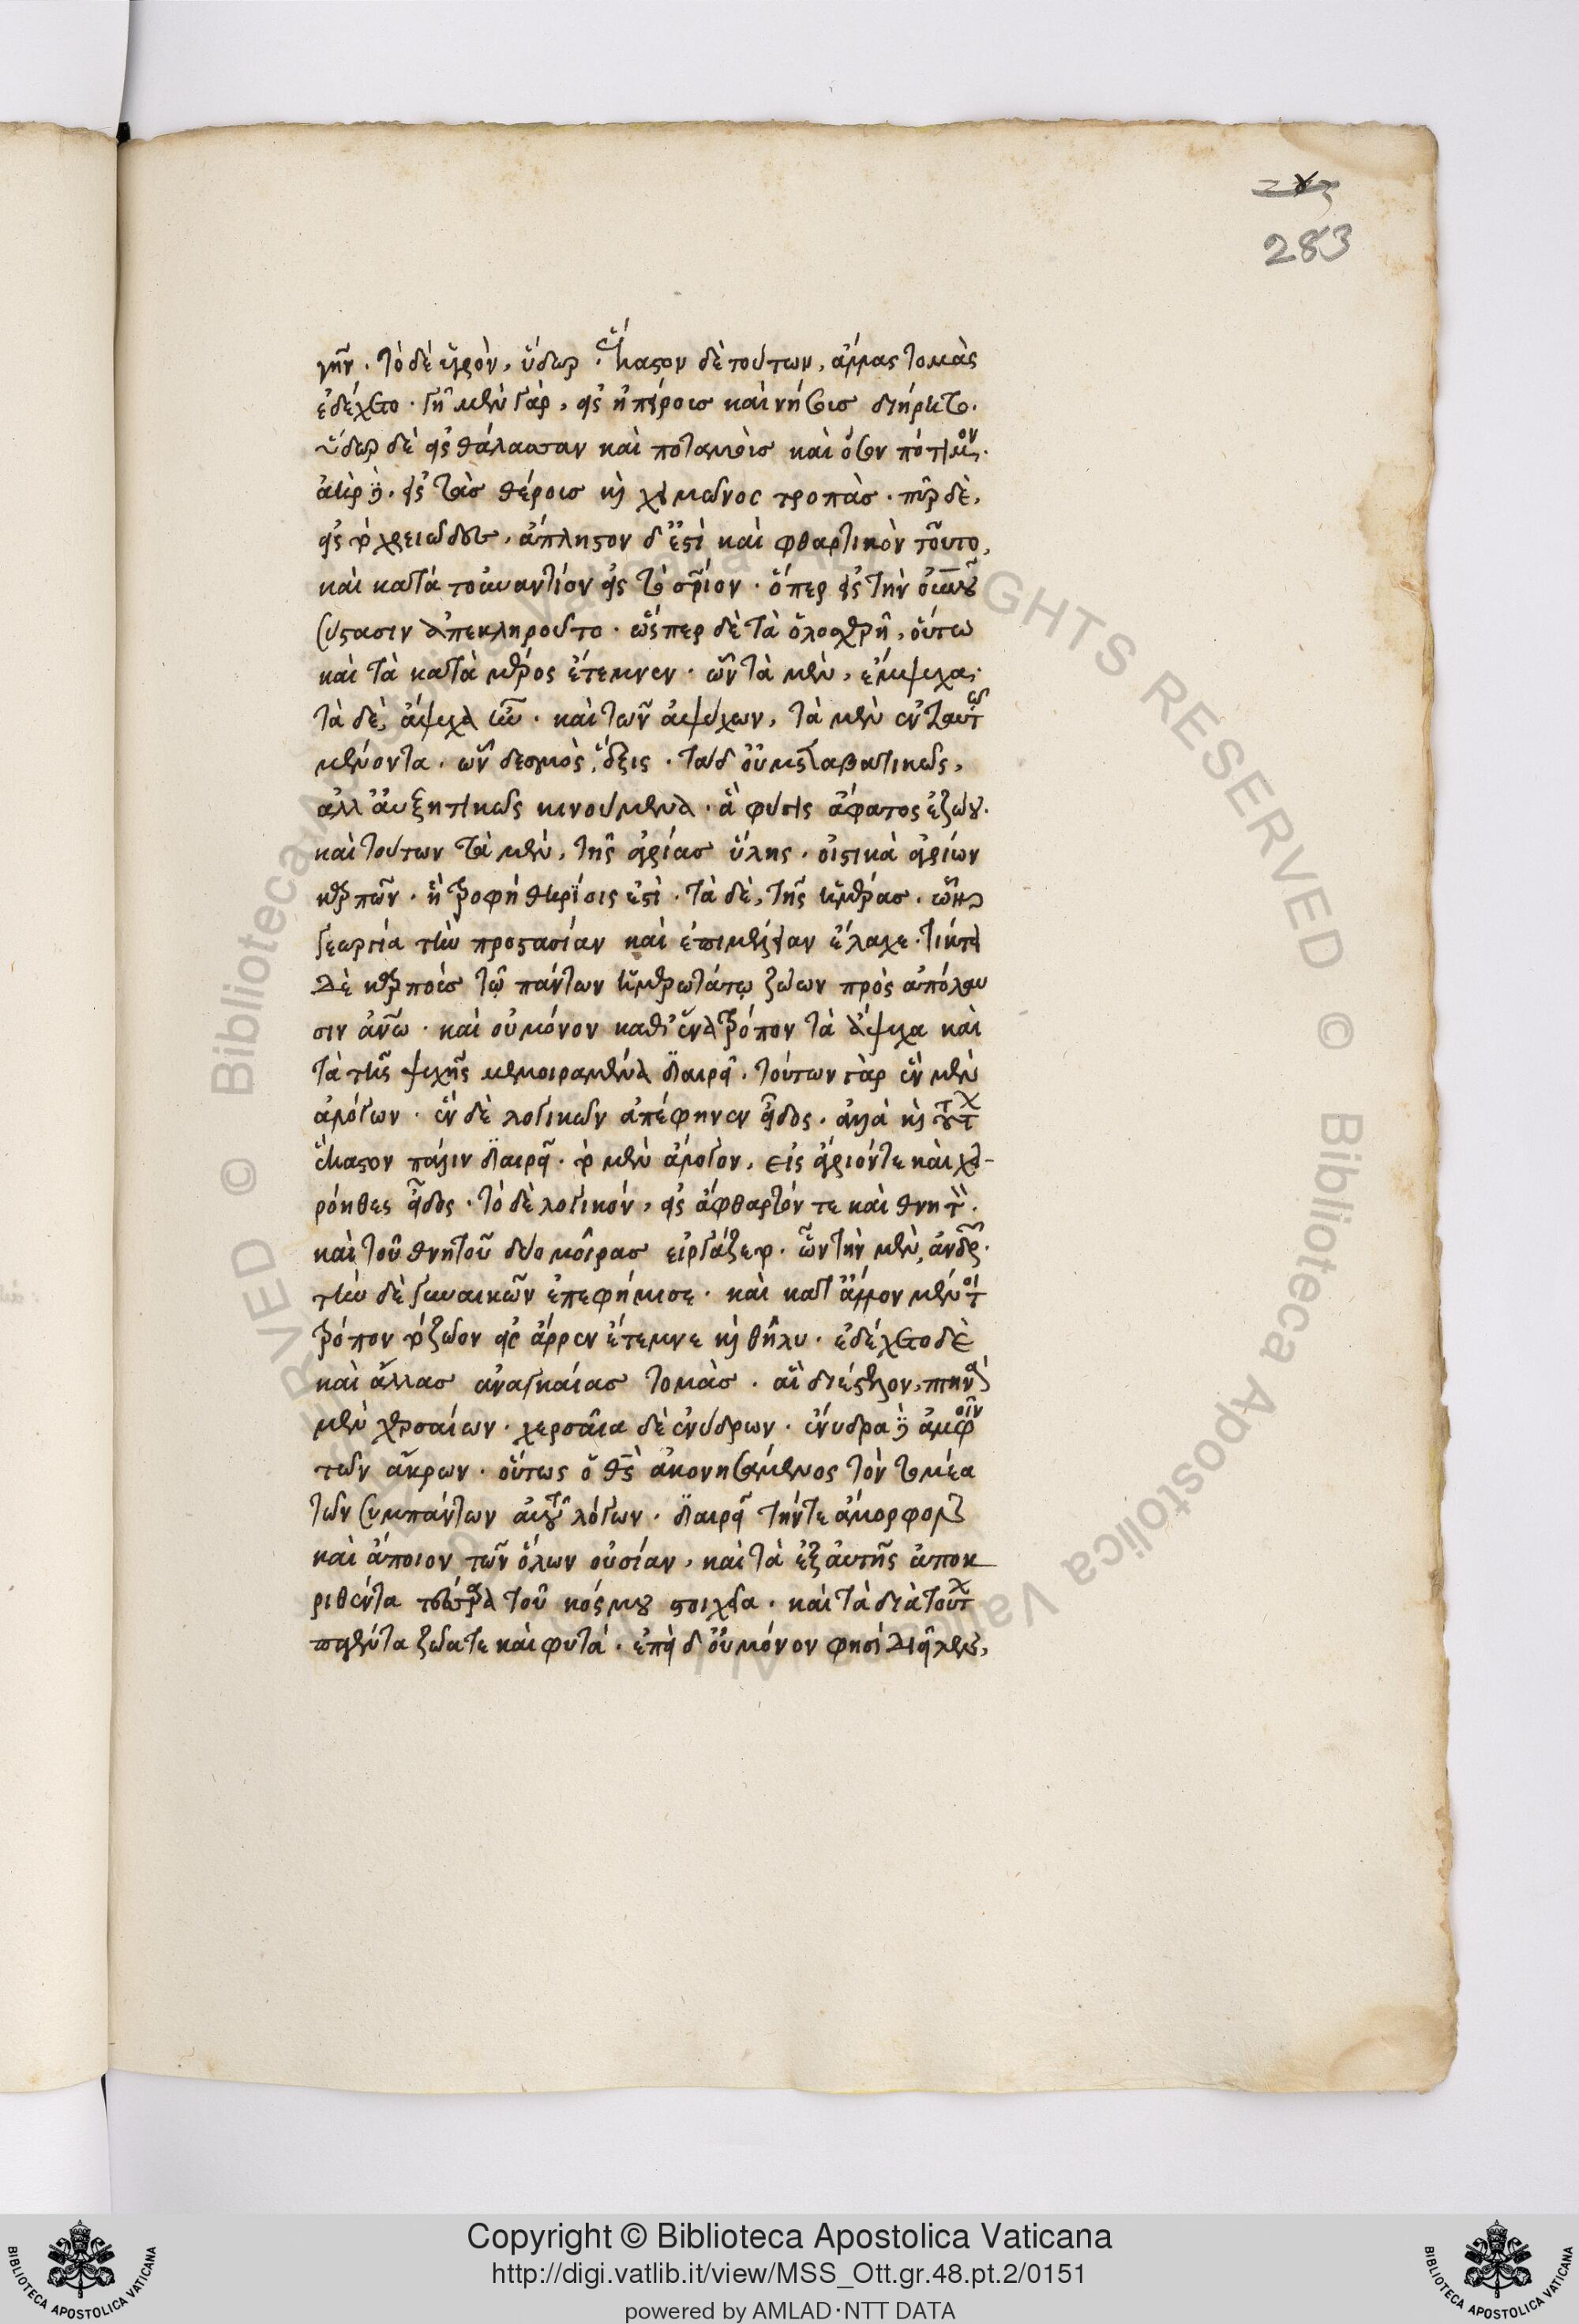 283
γῆν. τὸ δὲ ὑγρὸν, ὕδωρ. ἕκαστον δὲ τούτων, ἄλλας τομὰς
ἐδέχετο. γῆ μὲν γὰρ, εἰς ἠπείροις καὶ νήσοις διήρητο.
ὕδωρ δὲ εἰς θάλασσαν καὶ ποταμοὺς καὶ ὅσον πότιμον.
ἀὴρ δὲ. εἰς τὰς θέροις καὶ χειμῶνος τροπὰς. πῦρ δὲ,
εἰς τὸ χρειῶδες. ἄπληστον δ' ἐστὶ καὶ φθαρτικὸν τοῦτο,
καὶ κατὰ τοὐναντίον εἰς τὸ σωτήριον. ὅπερ εἰς τὴν οὐρανοῦ
σύστασιν ἀπεκληροῦτο. ὥσπερ δὲ τὰ ὁλοσχερῆ, οὕτω
καὶ τὰ κατὰ μέρος ἔτεμνεν. ὧν τὰ μὲν, ἔμψυχα.
τὰ δὲ, ἄψυχα ἦν. καὶ τῶν ἀψύχων, τὰ μὲν ἐν ταυτῶ
μένοντα. ὧν δεσμὸς, ἕξις. τὰ δ' οὐ μεταβατικῶς,
ἀλλ' αὐξητικῶς κινούμενα. ἃ φύσις ἀφάταστος ἐζώου.
καὶ τούτων τὰ μὲν, τῆς ἀγρίας ὕλης. οἰστικὰ ἀγρίων
καρπῶν. ἣ τροφὴ θηρίσις ἐστὶ. τὰ δὲ, τῆς ἡμέρας. ὧν
γεωργία τὴν προστασίαν καὶ ἐπιμέλειαν ἔλαχε. τίκτει
δὲ καρποὺς τῶ πάντων ἡμερωτάτω ζώων πρὸς ἀπόλαυ
σιν ἀνθρώπω. καὶ οὐ μόνον καθ' ἕνα τρόπον τὰ ἄψυχα καὶ
τὰ τῆς ψυχῆς μεμοιραμένα διαιρεῖ. τούτων γὰρ ἓν μὲν
ἀλόγων. ἓν δὲ λογικῶν ἀπέφηνεν εἶδος. ἀλλὰ καὶ τούτων
ἕκαστον πάλιν διαιρεῖ. τὸ μὲν ἄλογον, εἰς ἄγριόν τε καὶ χει-
ρόηθες εἶδος. τὸ δὲ λογικόν, εἰς ἄφθαρτόν τε καὶ θνητὸν.
καὶ τοῦ θνητοῦ δύο μοίρας εἰργάζετο. ὧν τὴν μὲν, ἀνδρῶν.
τὴν δὲ γυναικῶν ἐπεφήμισε. καὶ κατ' ἄλλον μέντοι
τρόπον τὸ ζῶον εἰς ἄρρεν ἔτεμνε καὶ θῆλυ. ἐδέχετο δὲ
καὶ ἄλλας ἀναγκαίας τομὰς. αἳ διέστελλον, πτηνὰ
μὲν χερσαίων. χερσαῖα δὲ ἐνύδρων. ἔνυδρα δὲ ἀμφοῖν
τῶν ἄκρων. οὕτως ὁ θεὸς ἀκονησάμενος τὸν τομέα
τῶν συμπάντων αὐτοῦ λόγων. διαιρεῖ τήν τε ἄμορφον
καὶ ἄποιον τῶν ὅλων οὐσίαν, καὶ τὰ ἐξ αὐτῆς ἀποκ
ριθέντα τέσσαρα τοῦ κόσμου στοιχεῖα. καὶ τὰ διὰ τούτων
παγέντα ζῶά τε καὶ φυτά. ἐπεὶ δ' οὐ μόνον φησὶ διεῖλεν,
Copyright © Biblioteca Apostolica Vaticana
http://digi.vatlib.it/view/MSS_Ott.gr.48.pt.2/0151
powered by AMLAD·NTT DATA